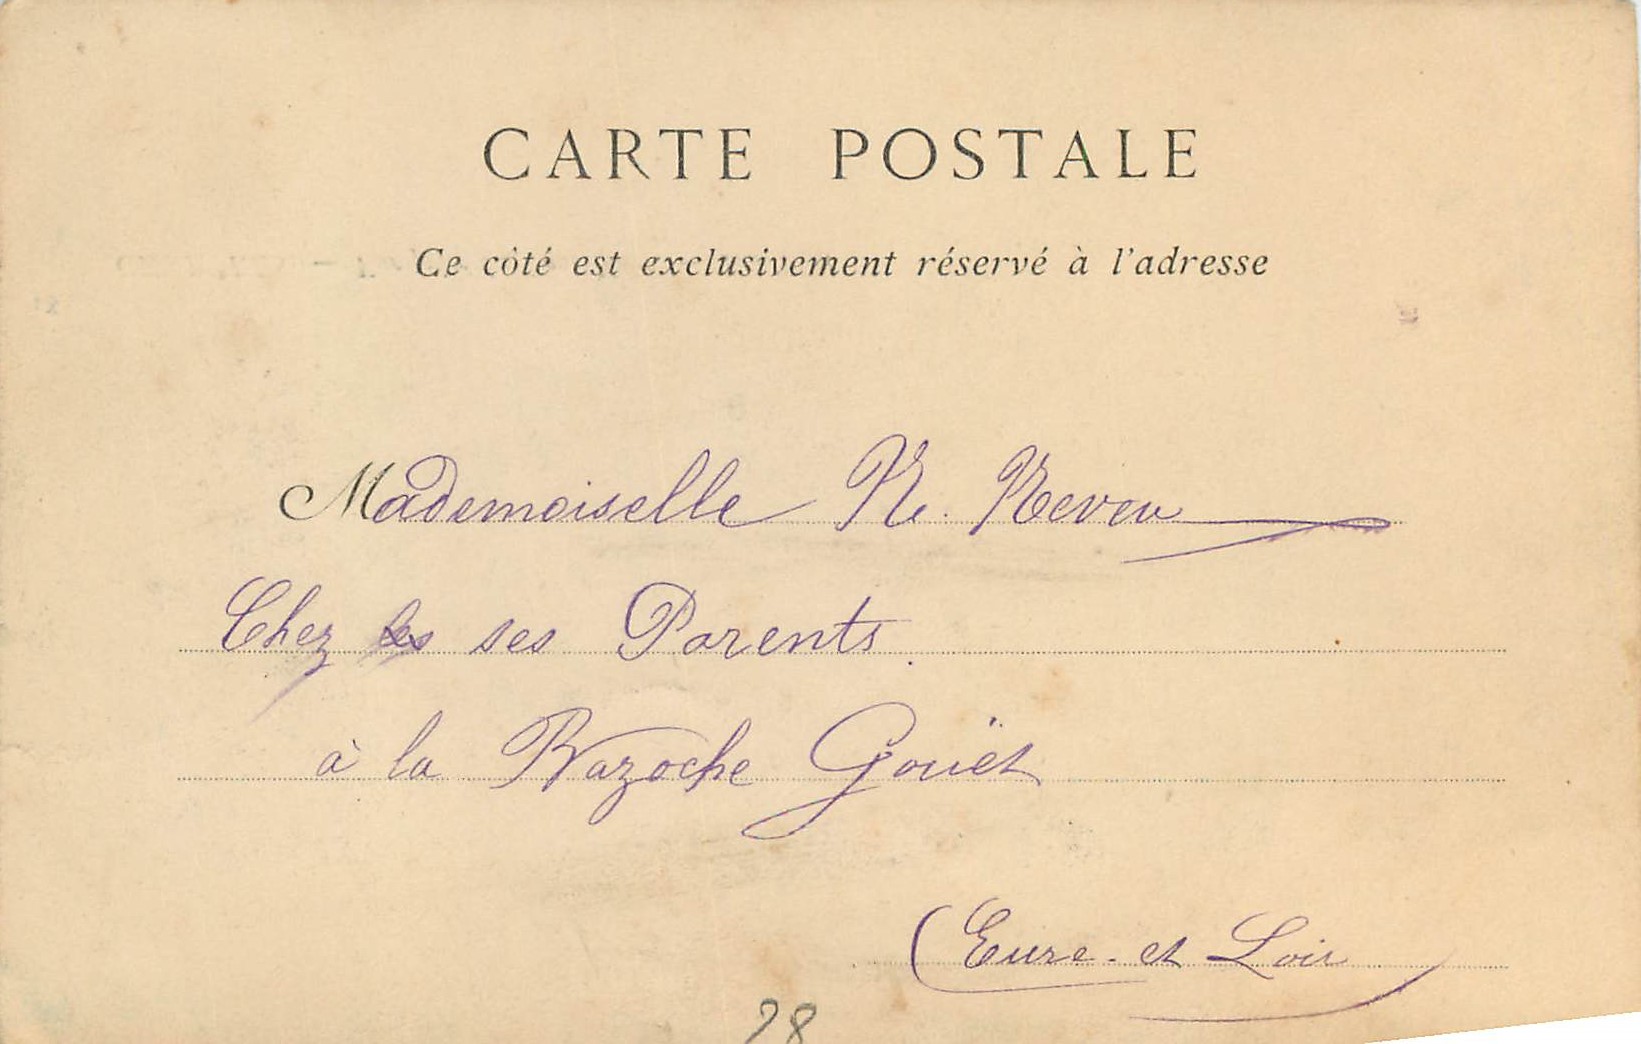 CARTE POSTALE
Ce côté est exclusivement réservé à l'adresse
Mademoiselle N. Neveu
Chez les ses Parents
à la Bazoche Gouët
(Eure-et Loir)
28